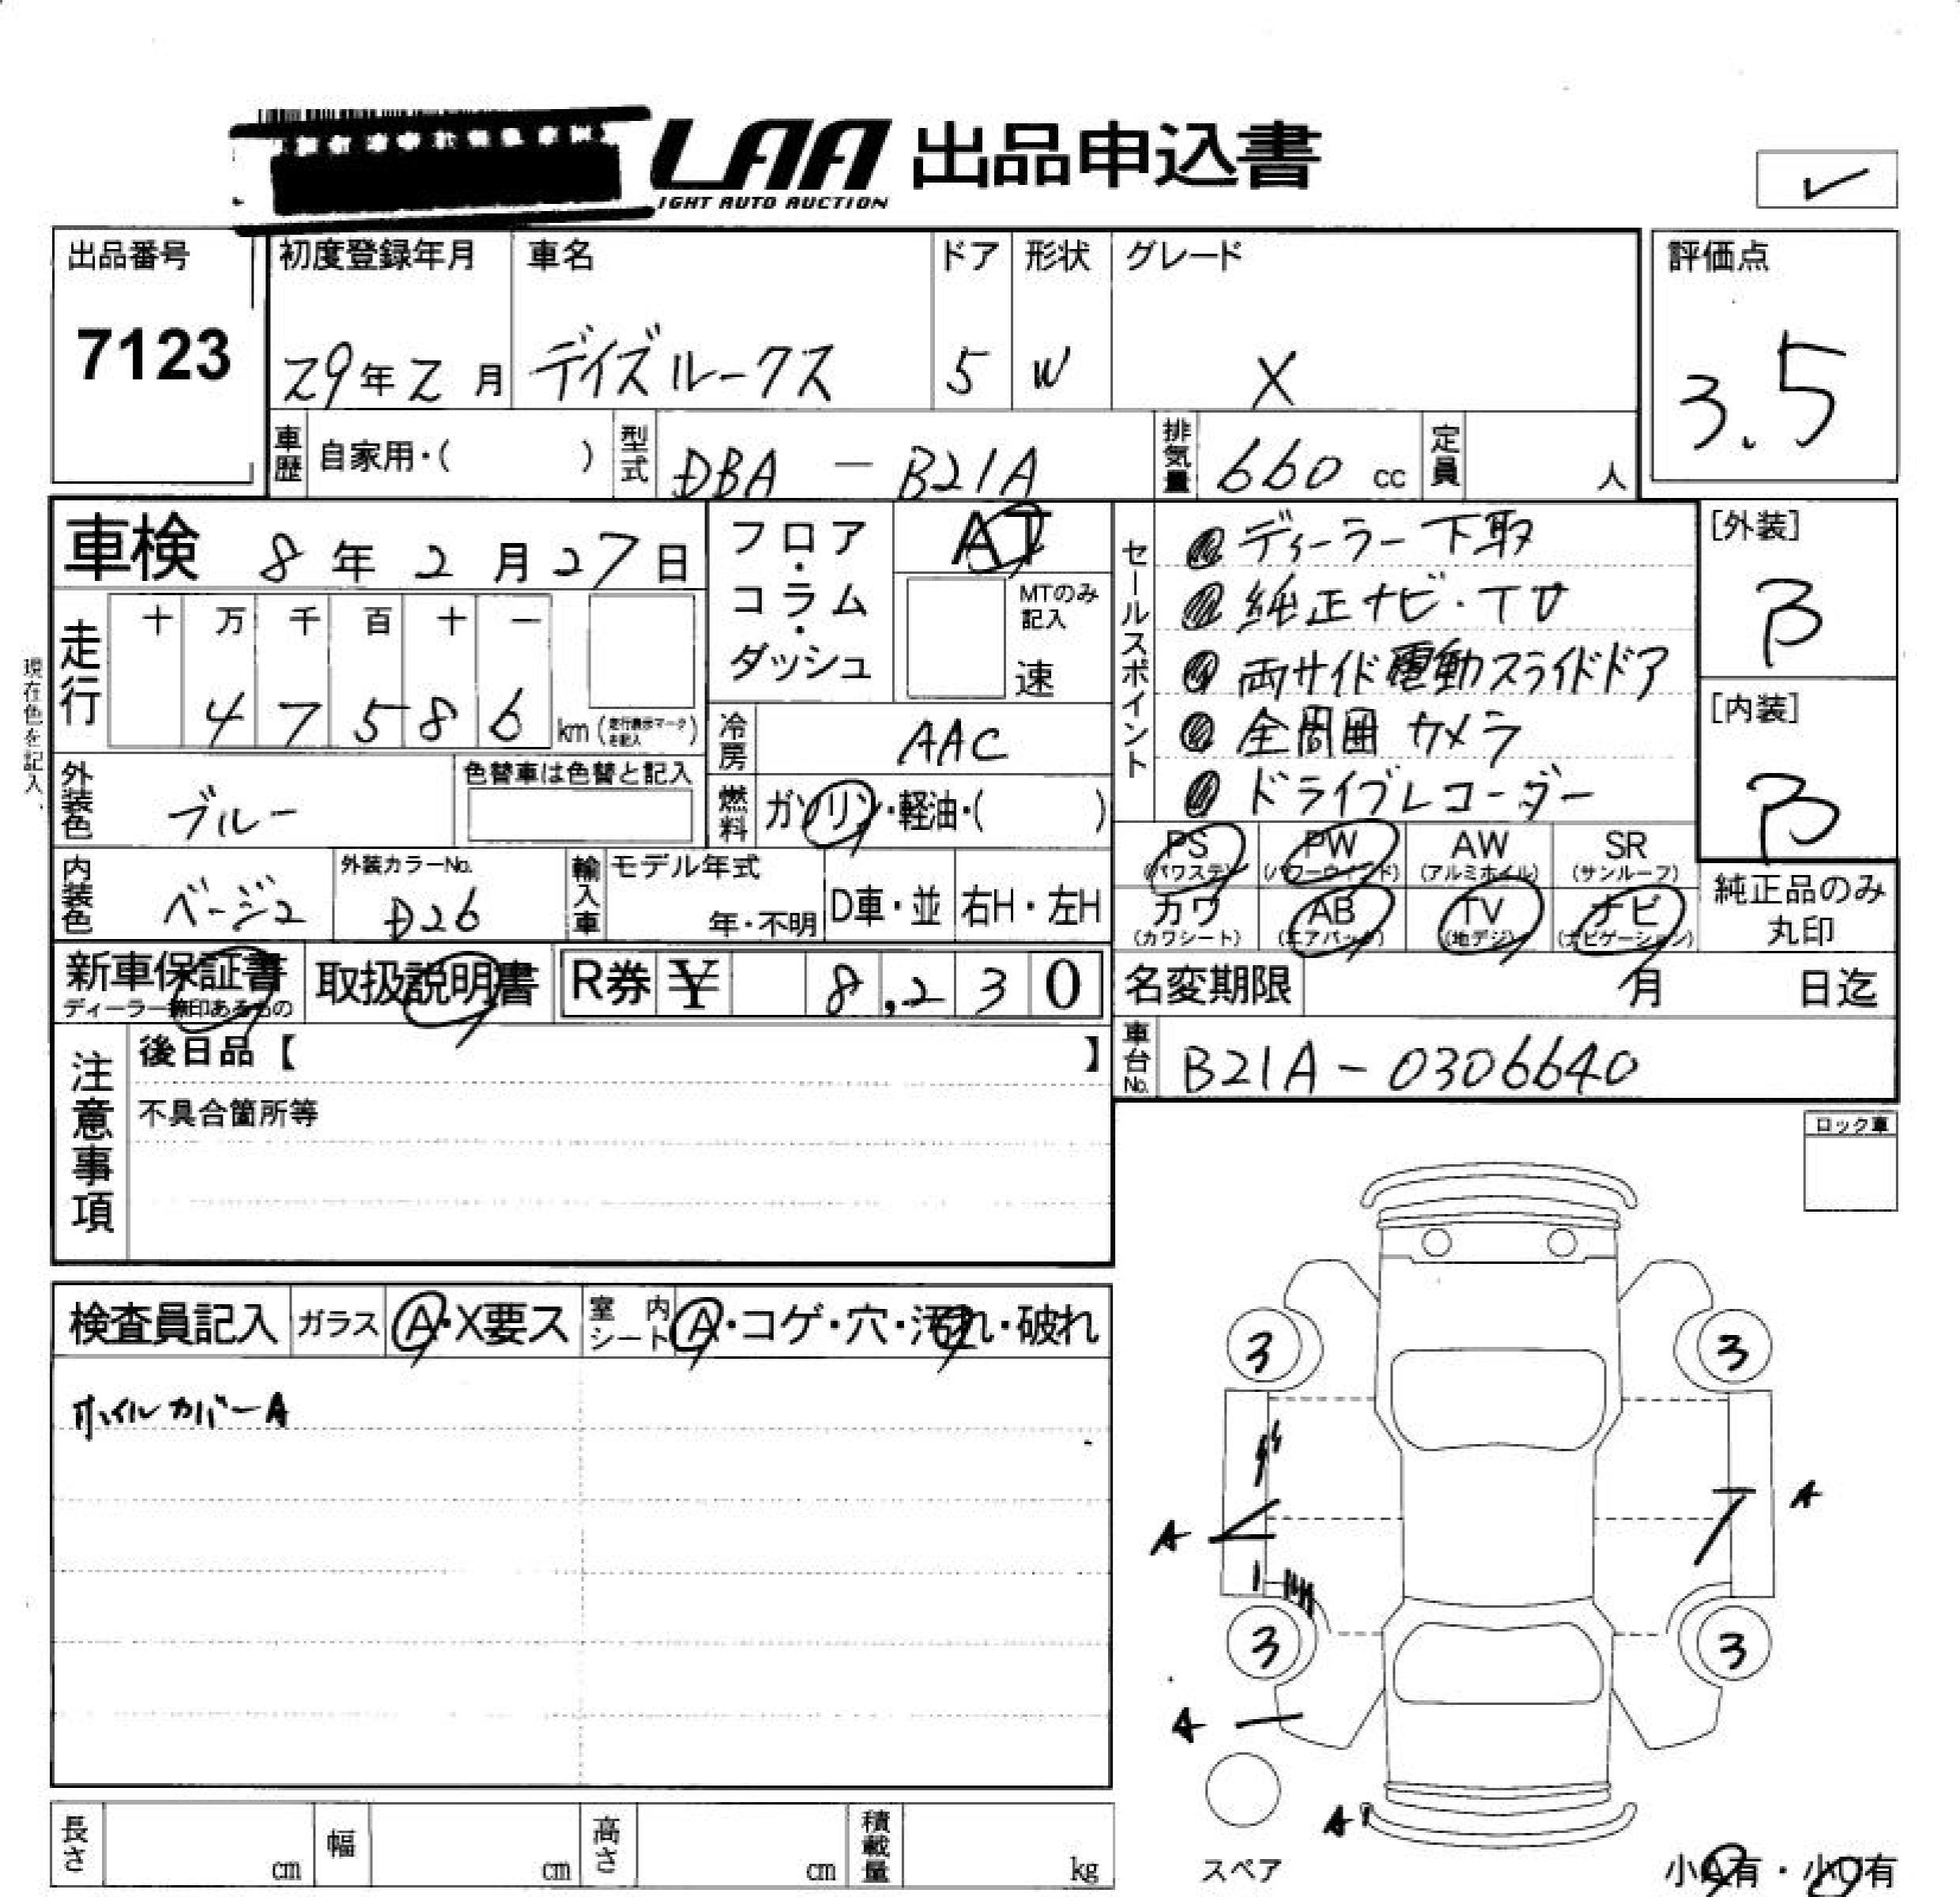 LAA 出品申込書
IGHT AUTO AUCTION
出品番号 初度登録年月 車名 ドア 形状 グレード 評価点
7123 29年2月 デイズルークス 5 W X 3.5
車歴 自家用・( ) 型式 DBA - B21A 排気量 660 cc 定員 人
車検 8年2月27日
フロア・コラム・ダッシュ AT
MTのみ記入 速
セールスポイント
ディーラー下取
純正ナビ・TV
両サイド電動スライドドア
全周囲カメラ
ドライブレコーダー
[外装] B
[内装] B
現在色を記入、
走行 十 万 千 百 十 一
47586 km (走行表示マークを記入)
冷房 AAC
外装色 ブルー 色替車は色替と記入
燃料 ガソリン・軽油・( )
PS (パワステ) PW (パワーウィンド) AW (アルミホイル) SR (サンルーフ)
カワ (カワシート) AB (エアバック) TV (地デジ) ナビ (ナビゲーション)
純正品のみ丸印
内装色 ベージュ 外装カラーNo. D26
輸入車 モデル年式 年・不明 D車・並 右H・左H
新車保証書 取扱説明書 R券 ¥ 8,230
ディーラー捺印あるもの
名変期限 月 日迄
車台No. B21A-0306640
注意事項 後日品【 】
不具合箇所等
ロック車
検査員記入 ガラス A・X要ス 室内シート A・コゲ・穴・汚れ・破れ
ホイルカバーA
3 3
A
A
3 3
A
A1
スペア
小A有・小U有
長さ cm 幅 cm 高さ cm 積載量 kg